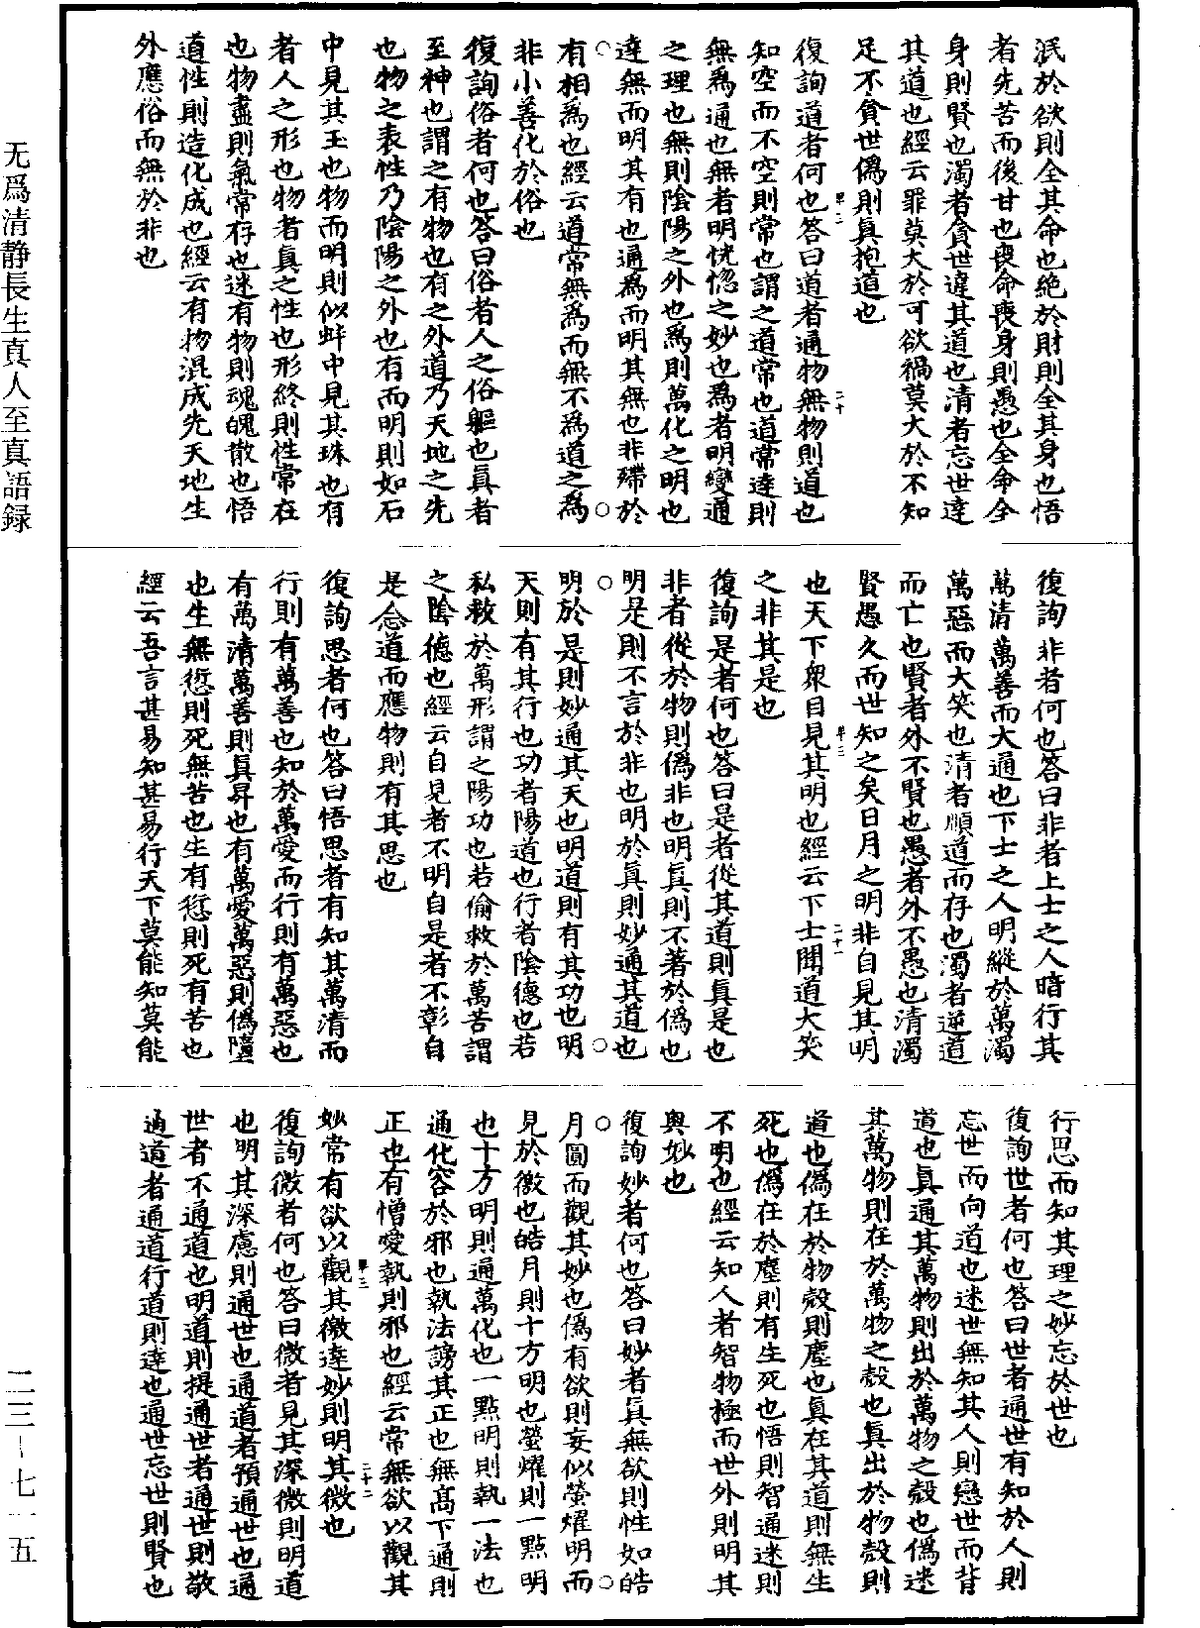 泯於欲則全其命也絶於財則全其身也悟
者先苦而後甘也喪命喪身則愚也全命全
身則賢也濁者貪世違其道也清者忘世達
其道也經云罪莫大於可欲禍莫大於不知
足不貪世僞則真抱道也
復詢道者何也答曰道者通物無物則道也
知空而不空則常也謂之道常也道常達則
無爲通也無者明恍惚之妙也爲者明變通
之理也無則陰陽之外也爲則萬化之明也
達無而明其有也通爲而明其無也非殢於
有相爲也經云道常無爲而無不爲道之爲
非小善化於俗也
復詢俗者何也答曰俗者人之俗軀也真者
至神也謂之有物也有之外道乃天地之先
也物之表性乃陰陽之外也有而明則如石
中見其玉也物而明則似蚌中見其珠也有
者人之形也物者真之性也形終則性常在
也物盡則氣常存也迷有物則魂魄散也悟
道性則造化成也經云有物混成先天地生
外應俗而無於非也
復詢非者何也答曰非者上士之人暗行其
萬清萬善而大通也下士之人明縱於萬濁
萬惡而大笑也清者順道而存也濁者逆道
而亡也賢者外不賢也愚者外不愚也清濁
賢愚久而世知之矣日月之明非自見其明
也天下衆目見其明也經云下士聞道大笑
之非其是也
復詢是者何也答曰是者從其道則真是也
非者從於物則僞非也明真則不著於僞也
明是則不言於非也明於真則妙通其道也
明於是則妙通其天也明道則有其功也明
天則有其行也功者陽道也行者陰德也若
私救於萬形謂之陽功也若偷救於萬苦謂
之陰德也經云自見者不明自是者不彰自
是念道而應物則有其思也
復詢思者何也答曰悟思者有知其萬清而
行則有萬善也知於萬愛而行則有萬惡也
有萬清萬善則真昇也有萬愛萬惡則僞墮
也生無愆則死無苦也生有愆則死有苦也
經云吾言甚易知甚易行天下莫能知莫能
行思而知其理之妙忘於世也
復詢世者何也答曰世者通世有知於人則
忘世而向道也迷世無知其人則戀世而背
道也真通其萬物則出於萬物之殼也僞迷
其萬物則在於萬物之殼也真出於物殼則
道也僞在於物殼則塵也真在其道則無生
死也僞在於塵則有生死也悟則智通迷則
不明也經云知人者智物極而世外則明其
奧妙也
復詢妙者何也答曰妙者真無欲則性如皓
月圓而觀其妙也僞有欲則妄似螢耀明而
見於徼也皓月則十方明也螢耀則一點明
也十方明則通萬化也一點明則執一法也
通化容於邪也執法謗其正也無高下通則
正也有憎愛執則邪也經云常無欲以觀其
妙常有欲以觀其徼達妙則明其微也
復詢微者何也答曰微者見其深微則明道
也明其深慮則通世也通道者預通世也通
世者不通道也明道則提通世者通世則敬
通道者通道行道則達也通世忘世則賢也
无爲清静長生真人至真語録
二三-七一五